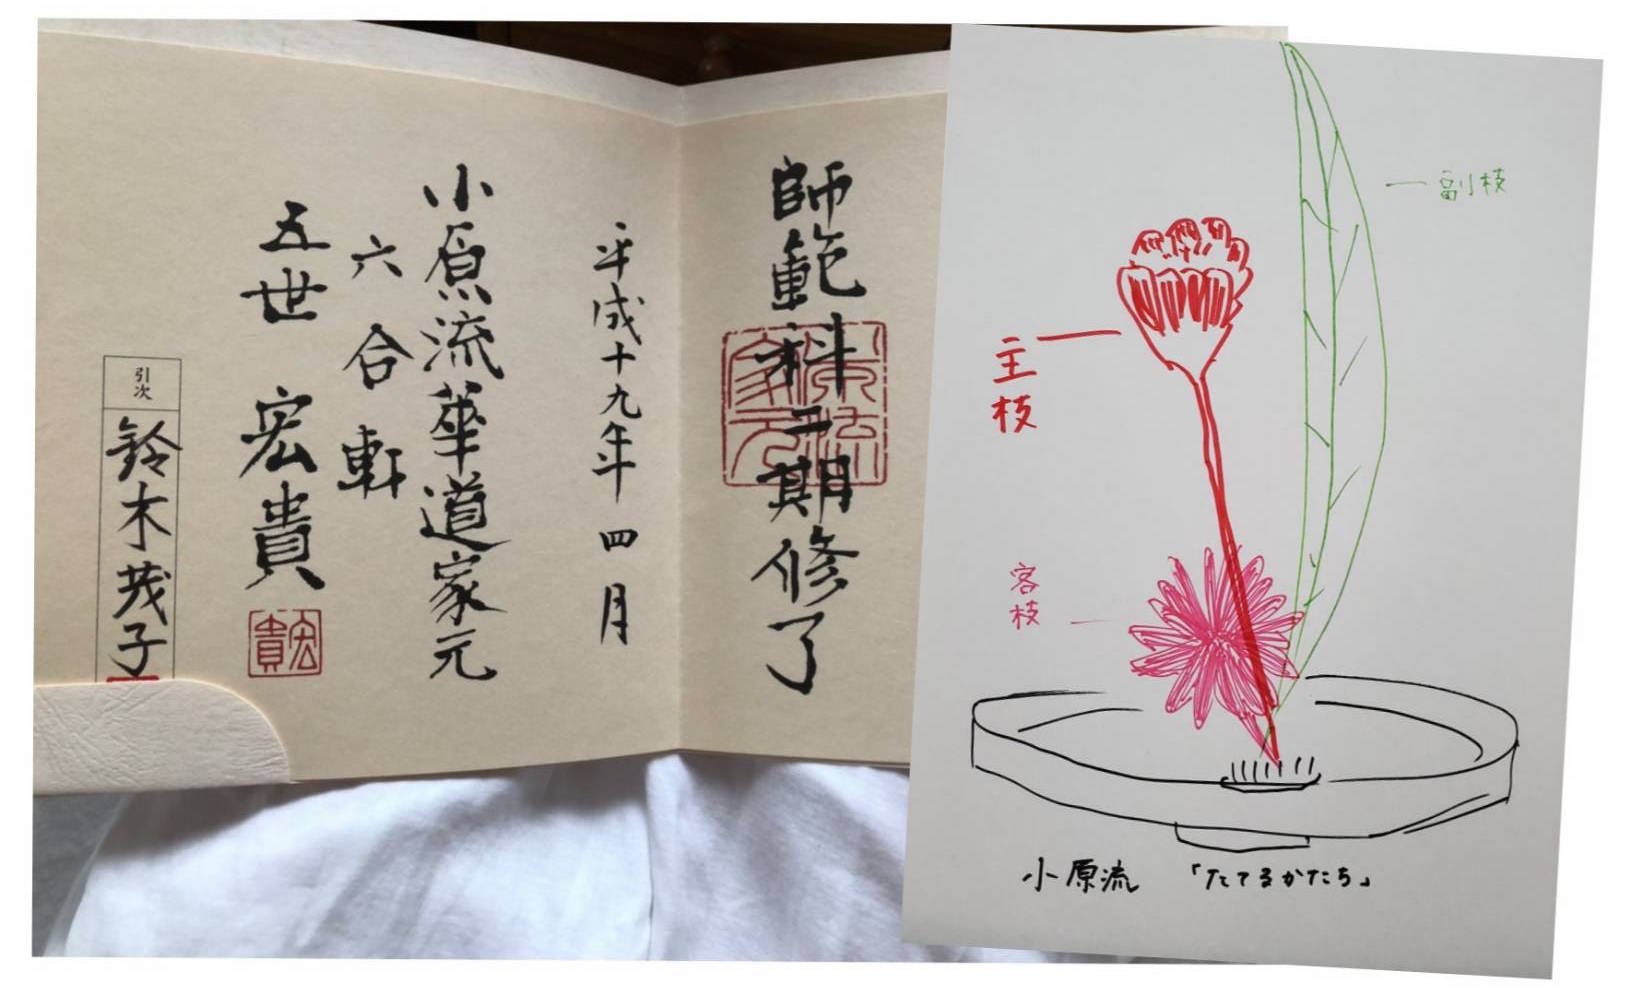 師範科二期修了
平成十九年四月
小原流華道家元
六合軒
五世 宏貴
宏貴
引次
鈴木茂子
副枝
主枝
客枝
小原流 「たてるかたち」